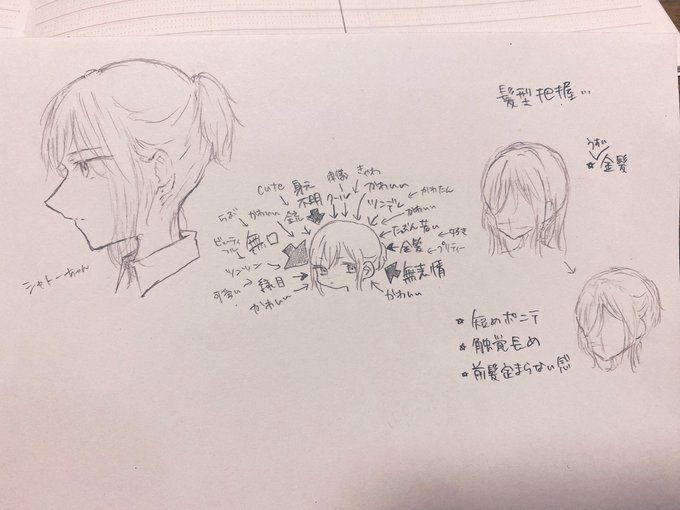 髪型把握…
うすい
☆金髪
cute
身元
不明
偶像
クール
きゃわ
かわいい
ツンデレ
かわたん
かわいい
たぶん若い
好き
金髪
プリティー
無表情
かわいい
かわいい
銃
無口
ビューティ
フル
ツンツン
緑目
可愛い
かわいい
シャトーちゃん
☆短めポニテ
☆触覚長め
☆前髪定まらない感